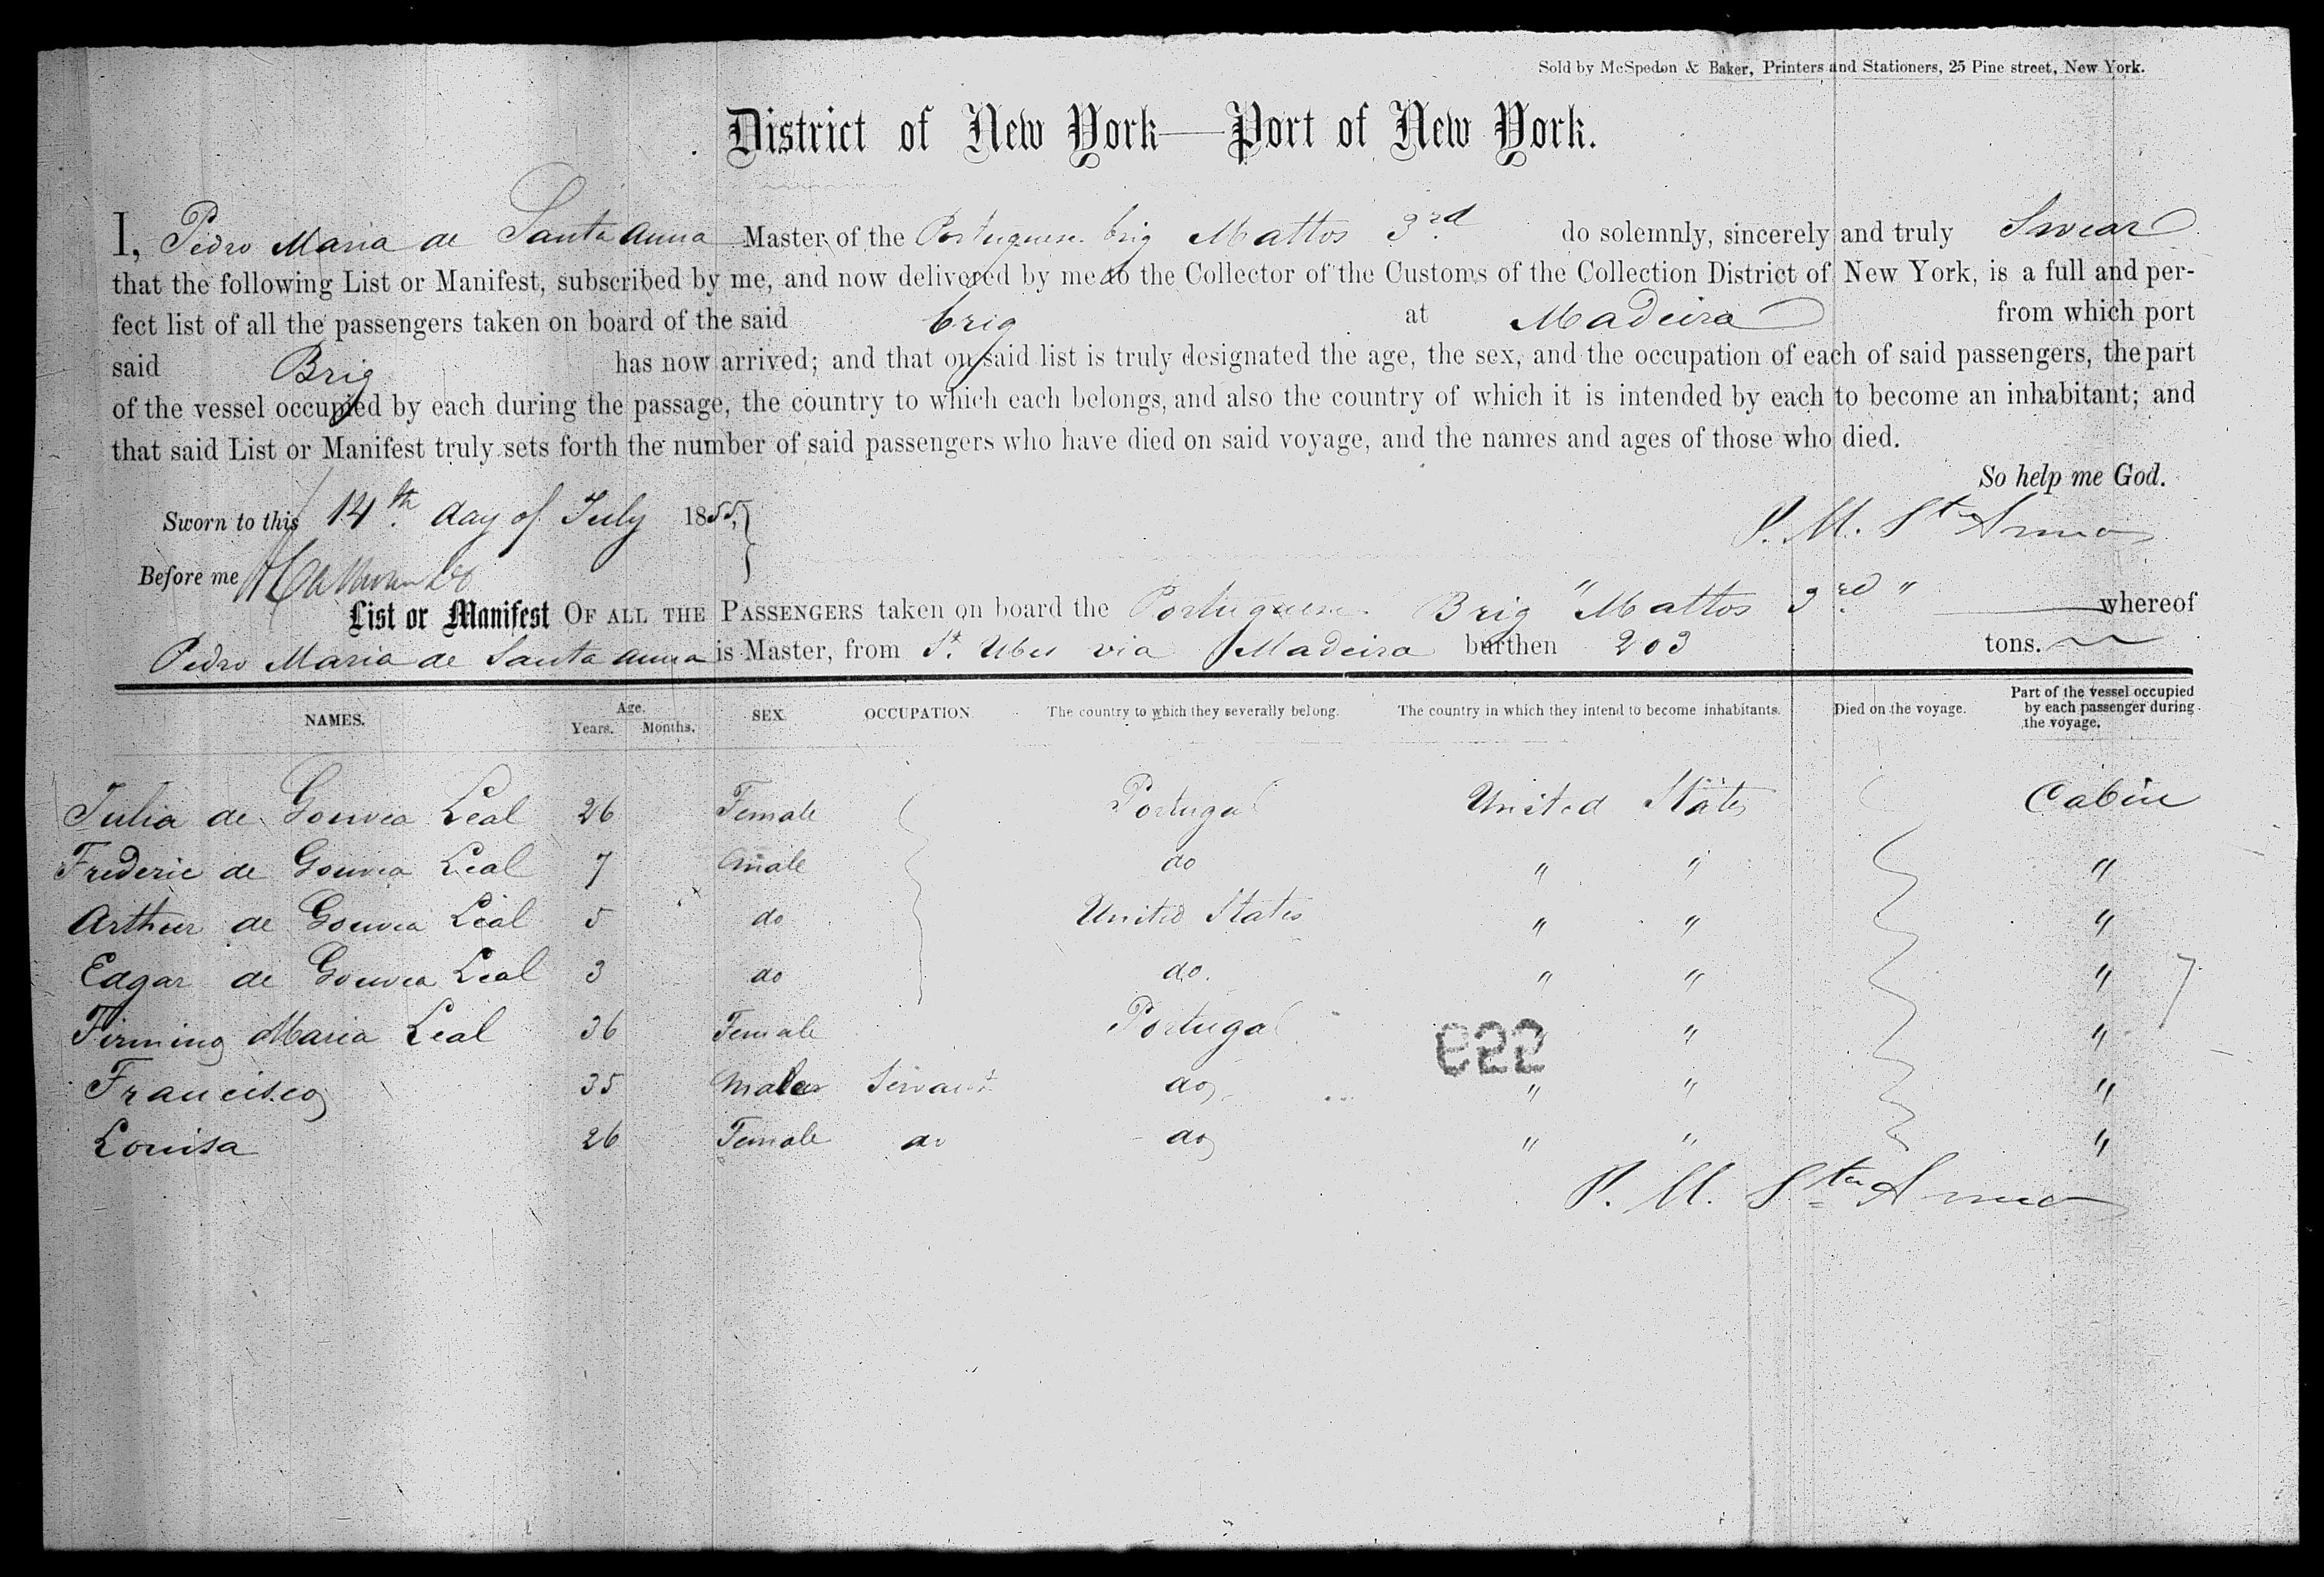 Sold by McSpedon & Baker, Printers and Stationers, 25 Pine street, New York.
District of New York—Port of New York.
I, Pedro Maria de Santa Anna Master of the Portuguese brig Mattos 3rd do solemnly, sincerely and truly Swear
that the following List or Manifest, subscribed by me, and now delivered by me to the Collector of the Customs of the Collection District of New York, is a full and per-
fect list of all the passengers taken on board of the said brig at Madeira from which port
said Brig has now arrived; and that on said list is truly designated the age, the sex, and the occupation of each of said passengers, the part
of the vessel occupied by each during the passage, the country to which each belongs, and also the country of which it is intended by each to become an inhabitant; and
that said List or Manifest truly sets forth the number of said passengers who have died on said voyage, and the names and ages of those who died.
So help me God.
Sworn to this 14th day of July 1855,
P. M. Sta Anna
Before me
List or Manifest OF ALL THE PASSENGERS taken on board the Portuguese Brig "Mattos 3rd" whereof
Pedro Maria de Santa Anna is Master, from St. Ubes via Madeira burthen 203 tons.
NAMES. Age. Years. Months. SEX. OCCUPATION. The country to which they severally belong. The country in which they intend to become inhabitants. Died on the voyage. Part of the vessel occupied by each passenger during the voyage.
Julia de Gouvea Leal 26 Female Portugal United States Cabin
Frederic de Gouvea Leal 7 Male do " " "
Arthur de Gouvea Leal 5 do United States " " "
Edgar de Gouvea Leal 3 do do. " " " 7
Firmina Maria Leal 36 Female Portugal " " "
622
Francisco 35 Male Servant do " " "
Louisa 26 Female do do " " "
P. M. Sta Anna